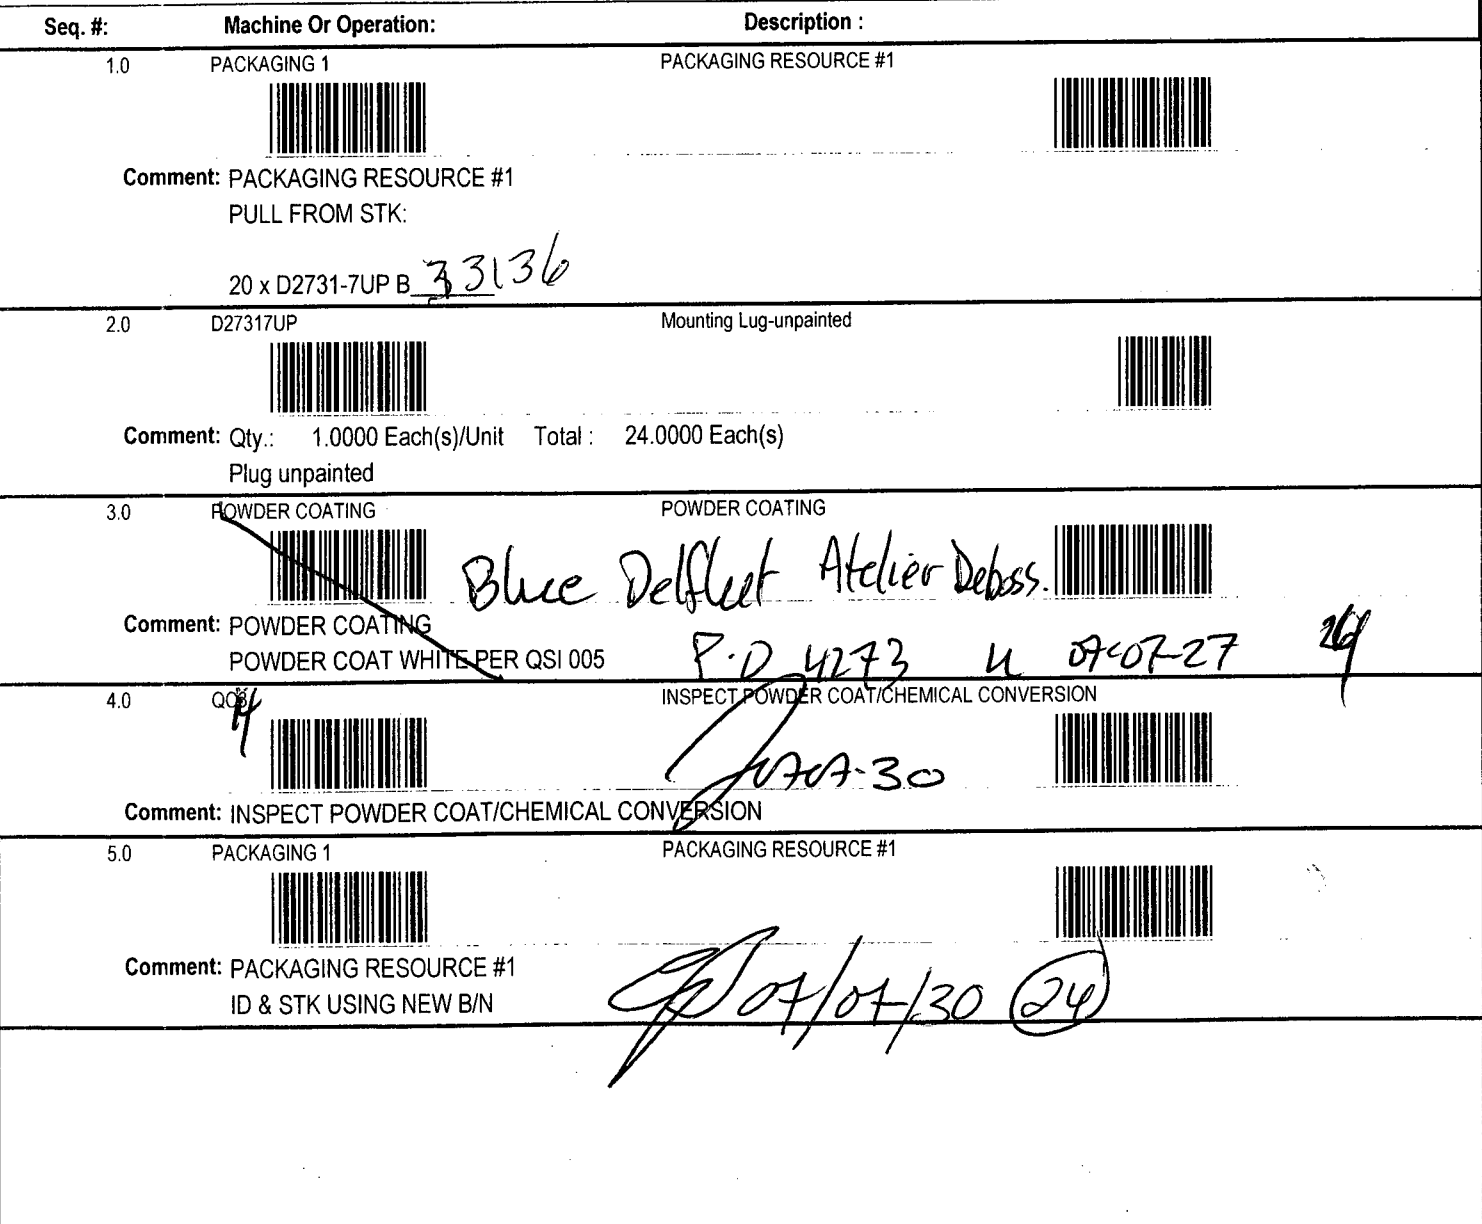 Seq. #: Machine Or Operation: Description :
1.0 PACKAGING 1 PACKAGING RESOURCE #1
Comment: PACKAGING RESOURCE #1
PULL FROM STK:
20 x D2731-7UP B 33136
2.0 D27317UP Mounting Lug-unpainted
Comment: Qty.: 1.0000 Each(s)/Unit Total : 24.0000 Each(s)
Plug unpainted
3.0 POWDER COATING POWDER COATING
Blue Delfleet Atelier Deboss.
Comment: POWDER COATING
POWDER COAT WHITE PER QSI 005 P.O 4273 07-07-27
4.0 INSPECT POWDER COAT/CHEMICAL CONVERSION
07-07-30
Comment: INSPECT POWDER COAT/CHEMICAL CONVERSION
5.0 PACKAGING 1 PACKAGING RESOURCE #1
Comment: PACKAGING RESOURCE #1
ID & STK USING NEW B/N 07/07/30 24